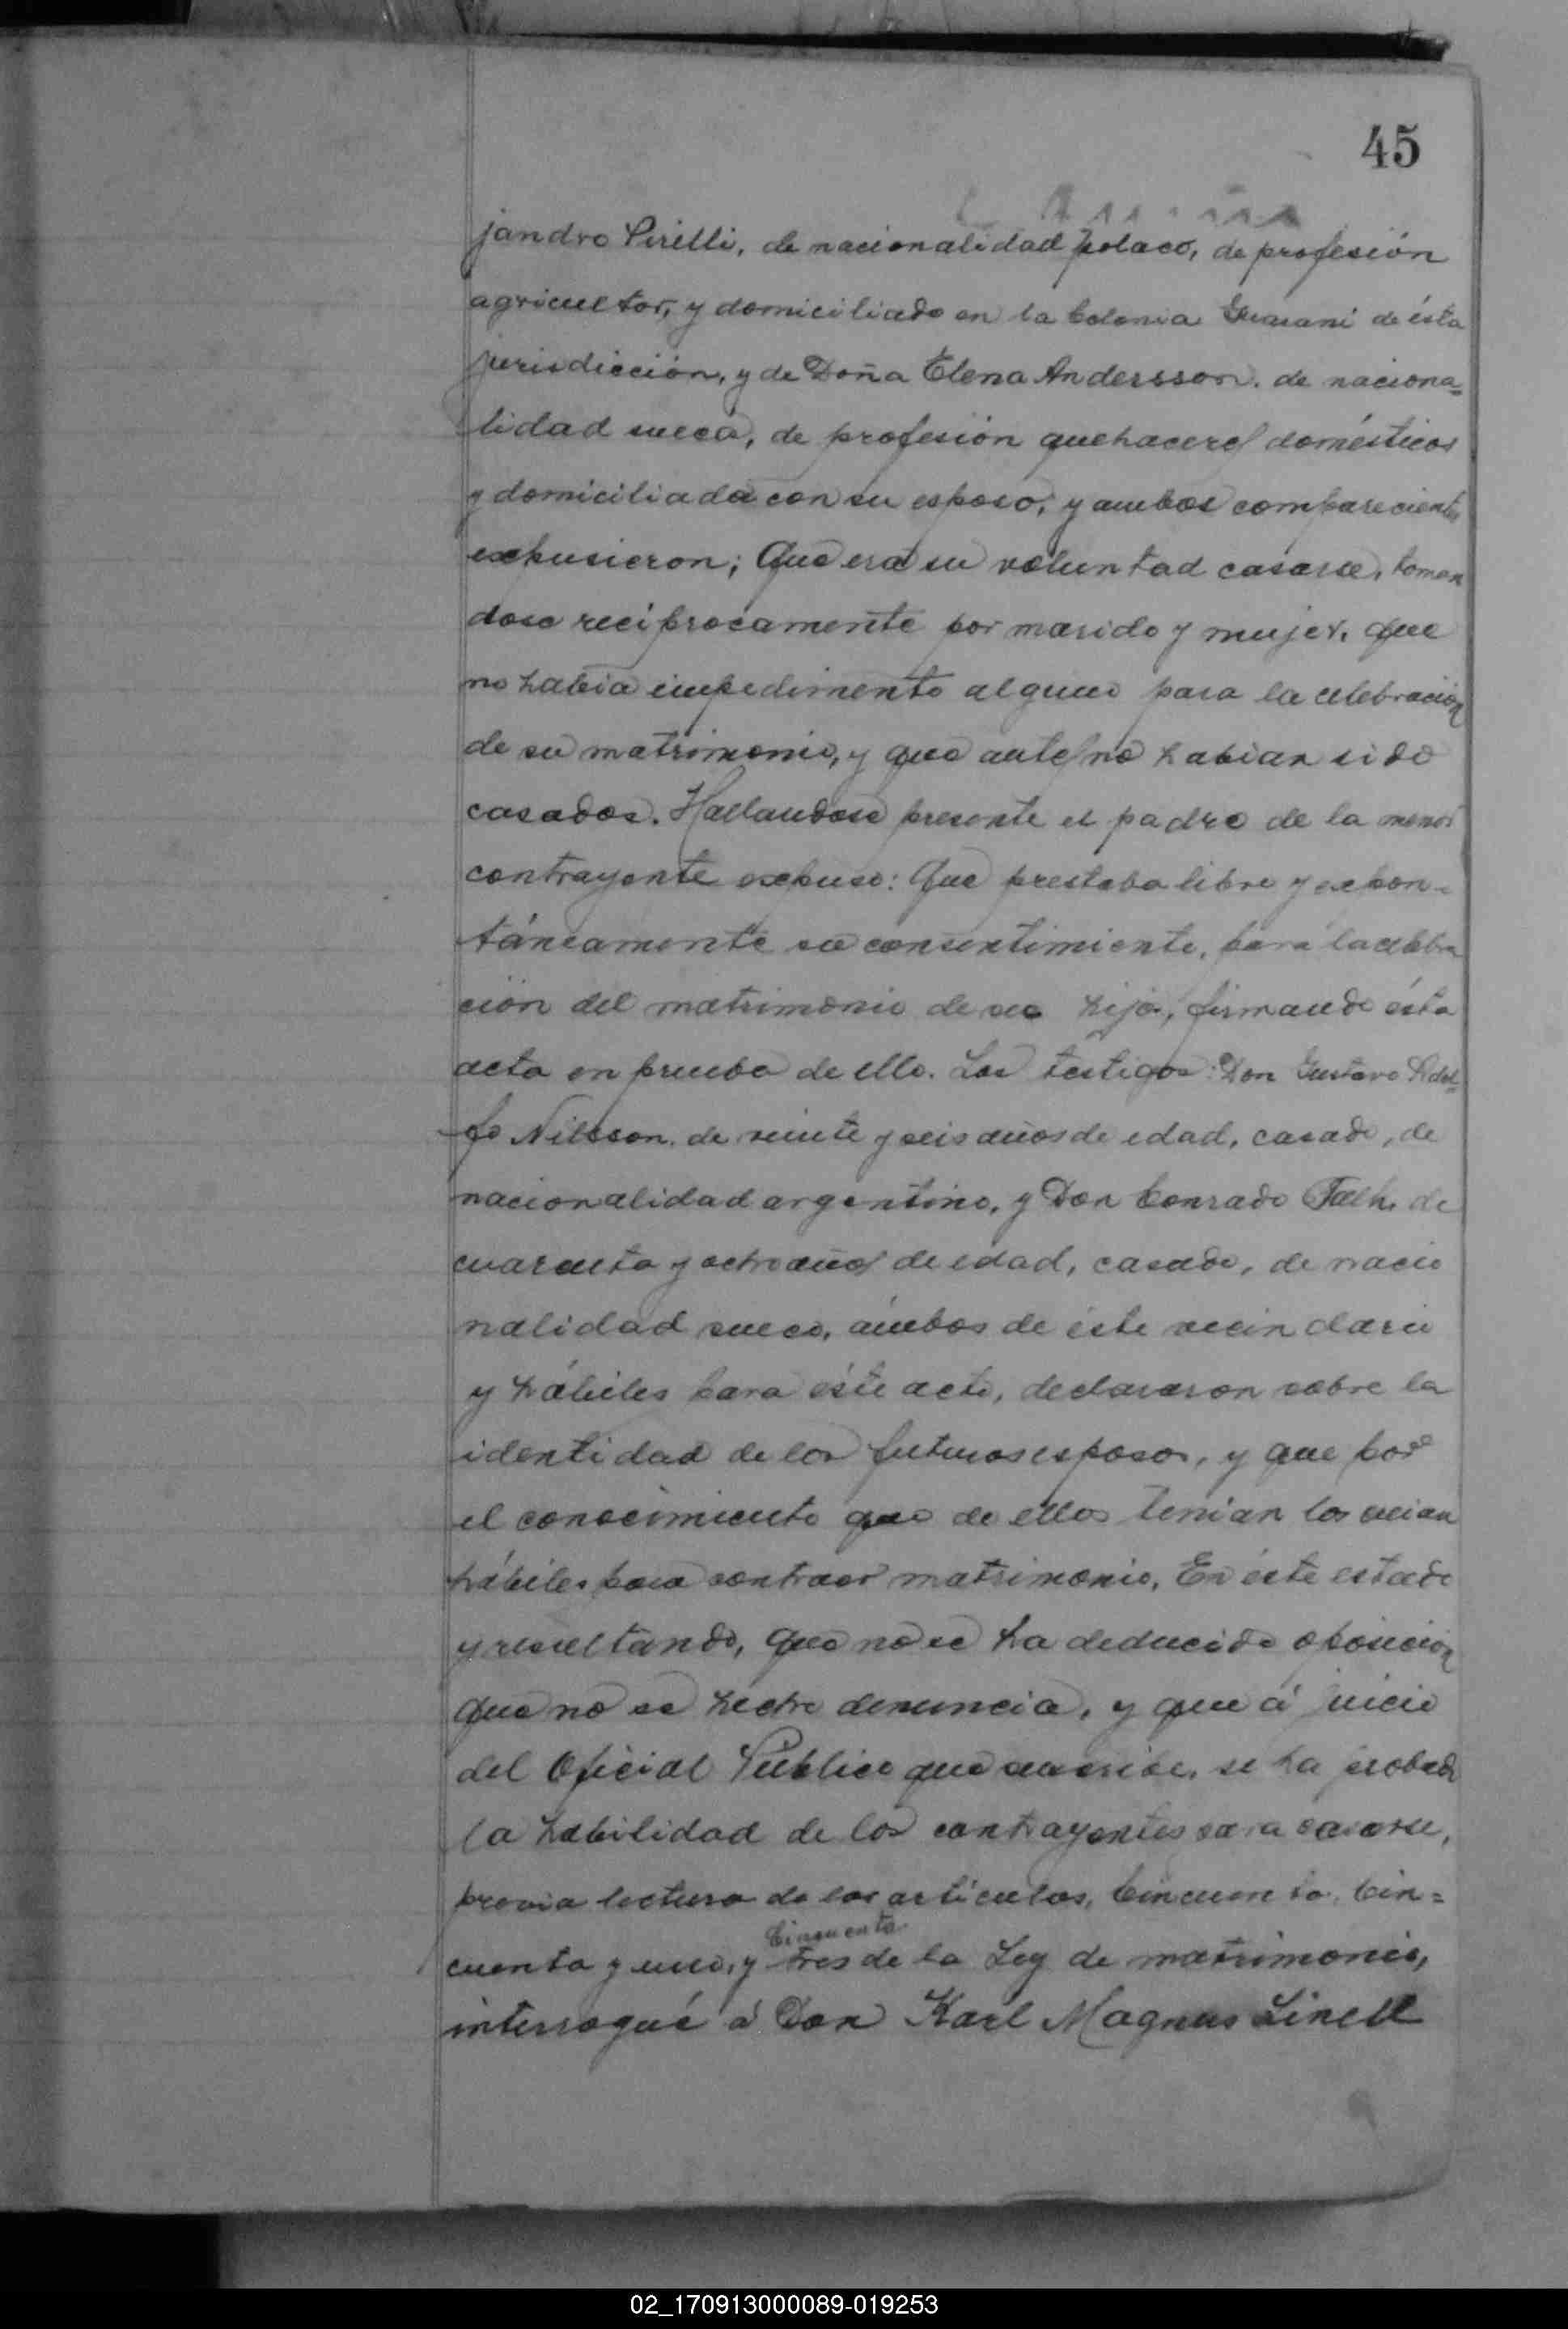 45
jandro Pirelli, de nacionalidad polaco, de profesión
agricultor, y domiciliado en la Colonia Guaraní de ésta
jurisdicción, y de Doña Elena Andersson, de naciona=
lidad sueca, de profesión quehaceres domésticos
y domiciliada con su esposo, y ambos comparecientes
expusieron; Que era su voluntad casarse, toman
dose recíprocamente por marido y mujer, que
no habia impedimento alguno para la celebración
de su matrimonio, y que antes no habian sido
casados. Hallandose presente el padre de la menor
contrayente expuso: Que prestaba libre y expon-
táneamente su consentimiento, para la celebra
ción del matrimonio de su hija, firmando ésta
acta en prueba de ello. Los testigos: Don Gustavo Adol=
fo Nilsson, de veinte y seis años de edad, casado, de
nacionalidad argentino, y Don Conrado Falk, de
cuarenta y ocho años de edad, casado, de nacio
nalidad sueco, ámbos de éste vecindario
y hábiles para éste acto, declararon sobre la
identidad de los futuros esposos, y que por
el conocimiento que de ellos tenian los creian
hábiles para contraer matrimonio. En éste estado
y resultando, que no se ha deducido oposición
que no se hecho denuncia, y que á juicio
del Oficial Público que suscribe, se ha probado
la habilidad de los contrayentes para casarse,
previa lectura de los artículos, Cincuenta, Cin=
Cincuenta
cuenta y uno, y tres de la Ley de matrimonio,
interrogué á Don Karl Magnus Linell
02_170913000089-019253